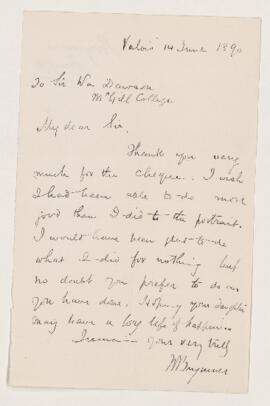 Valois 14 June 1890
To Sir Wm Dawson
McGill College
My dear Sir.
Thank you very
much for the cheque. I wish
I had been able to do more
good than I did to the portrait.
I would have been glad to do
what I did for nothing but
no doubt you prefer to do as
you have done. Hoping your daughter
may have a long life of happiness
I remain yours very truly